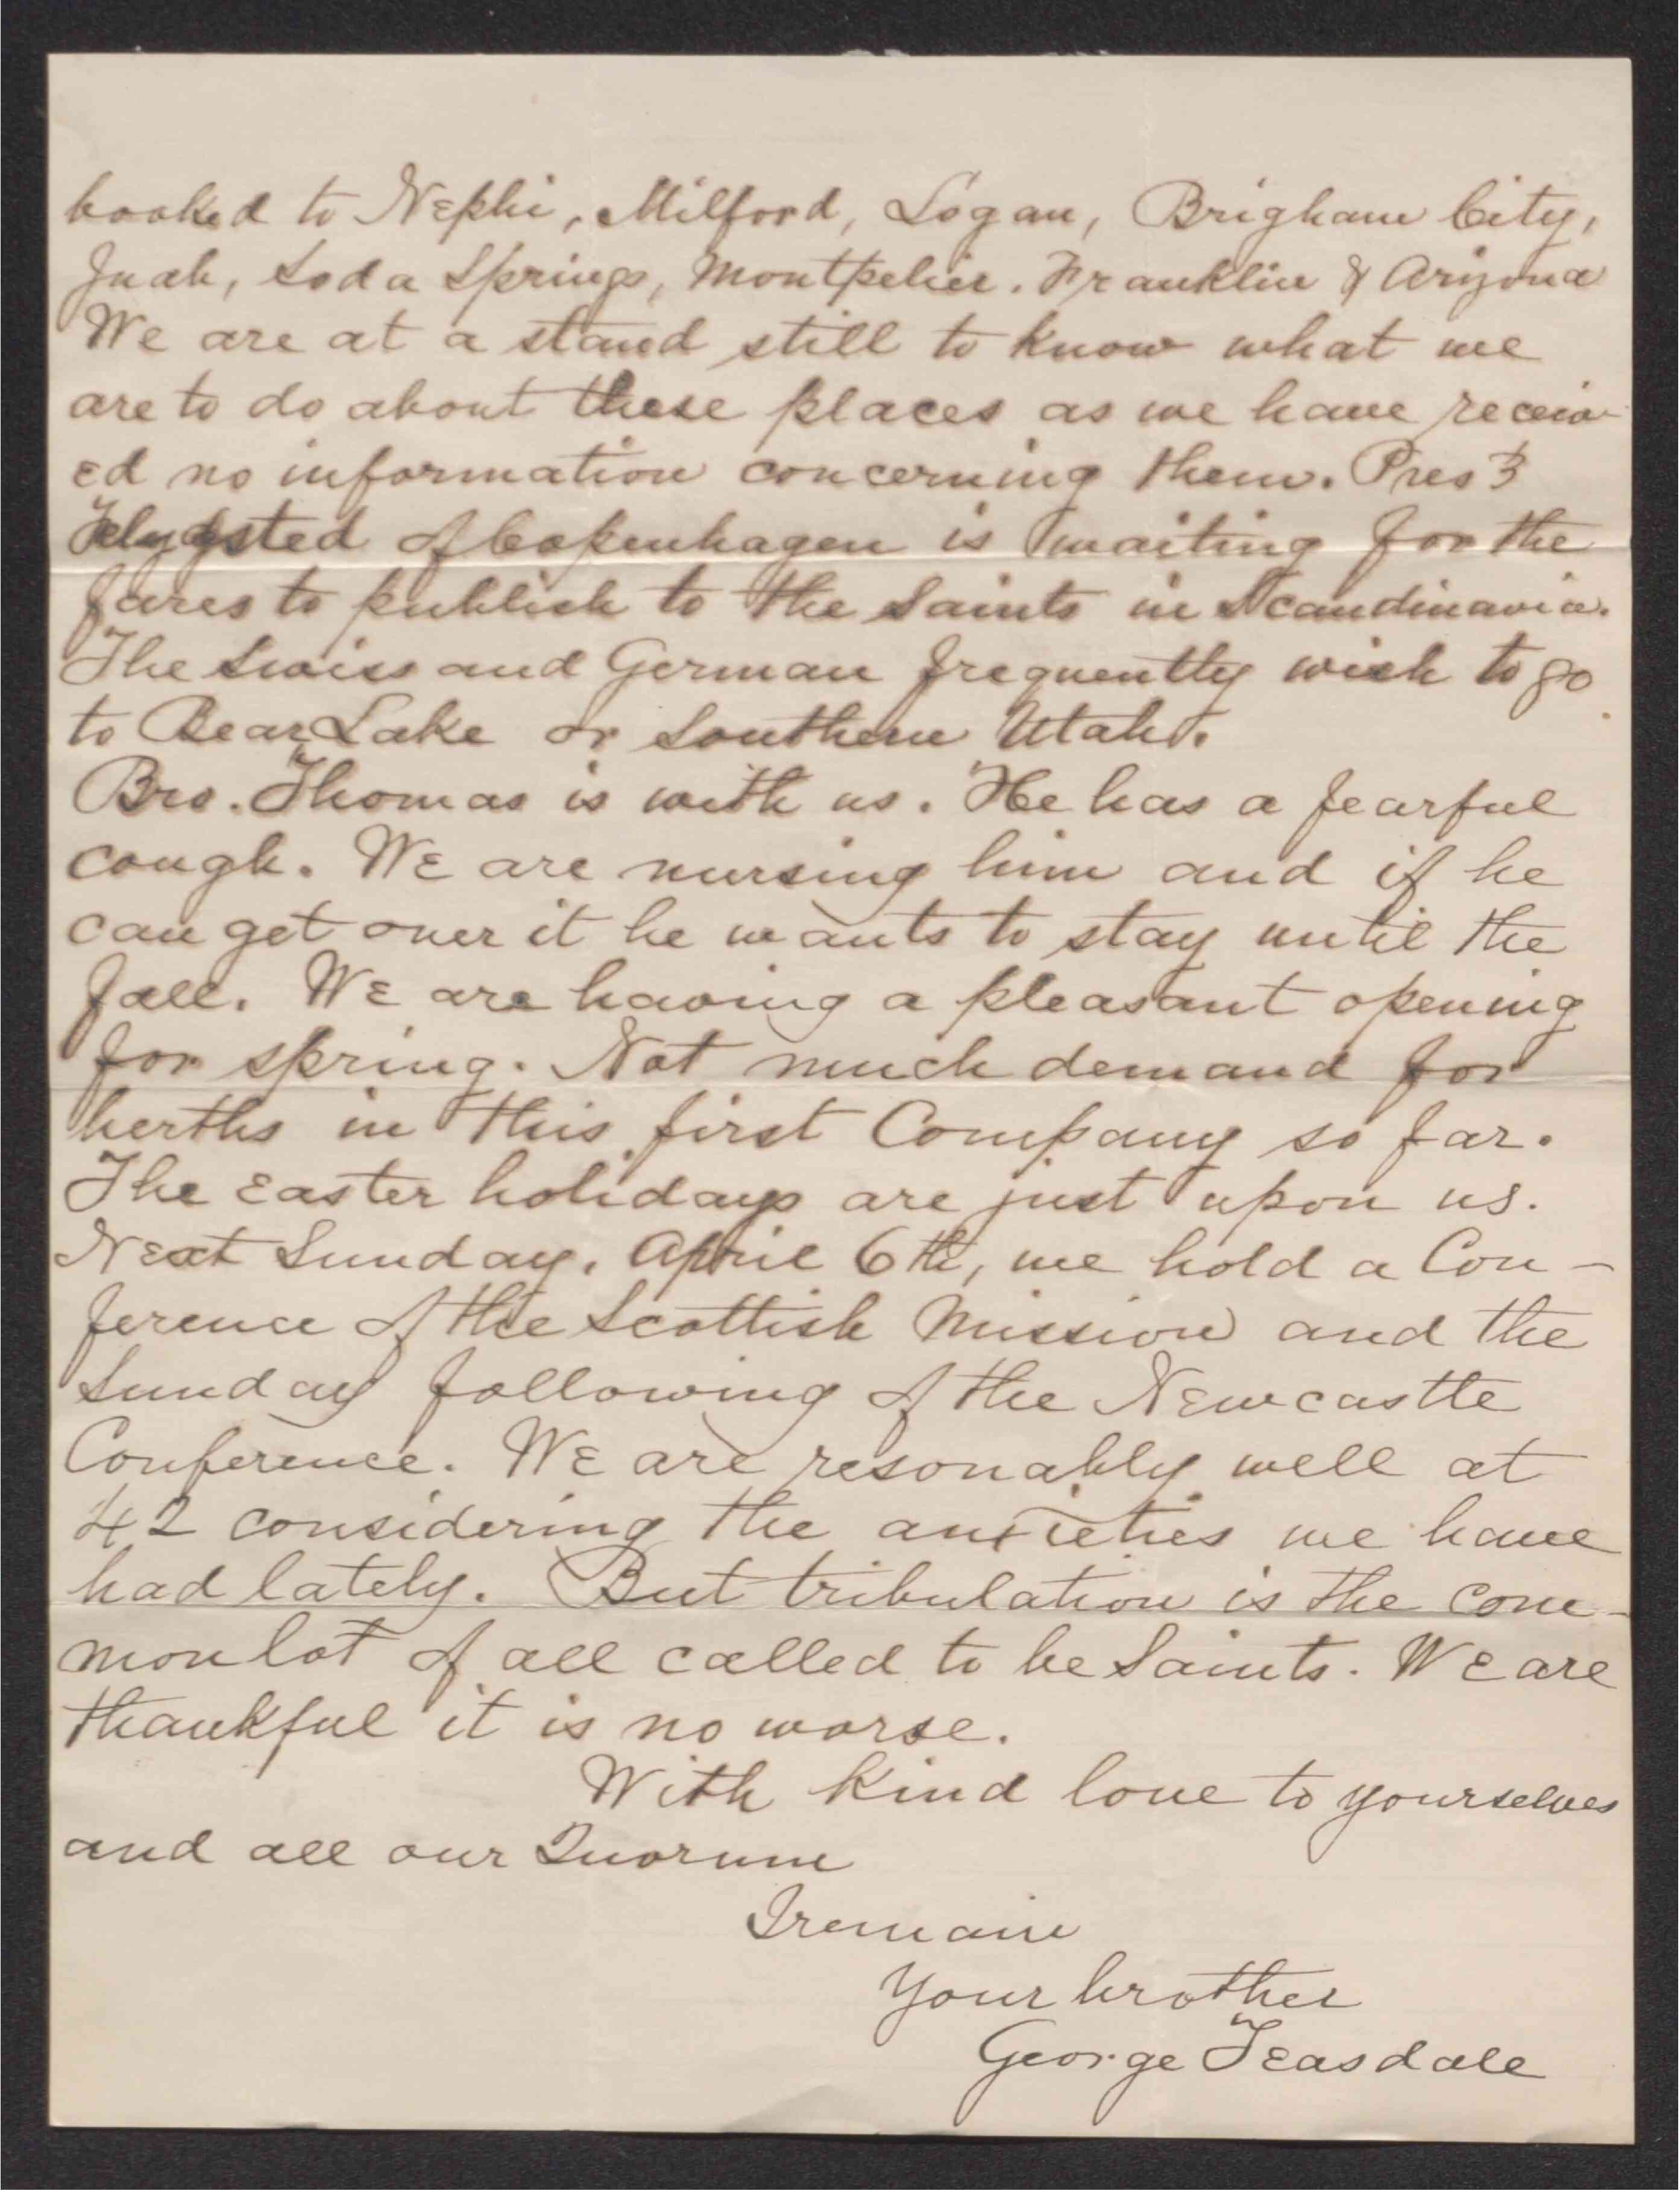 booked to Nephi, Milford, Logan, Brigham City,
Juab, Soda Springs, Montpelier. Franklin & Arizona
We are at a stand still to know what we
are to do about these places as we have receiv-
ed no information concerning them. Pres't
Flygsted of Copenhagen is waiting for the
fares to publish to the Saints in Scandinavia.
The Swiss and German frequently wish to go
to Bear Lake or Southern Utah.
Bro. Thomas is with us. He has a fearful
cough. We are nursing him and if he
can get over it he wants to stay until the
fall. We are having a pleasant opening
for spring. Not much demand for
berths in this first Company so far.
The Easter holidays are just upon us.
Next Sunday, April 6th, we hold a Con-
ference of the Scottish Mission and the
Sunday following of the Newcastle
Conference. We are resonably well at
42 considering the anxieties we have
had lately. But tribulation is the com-
mon lot of all called to be Saints. We are
thankful it is no worse.
With kind love to yourselves
and all our Quorum
I remain
Your brother
George Teasdale